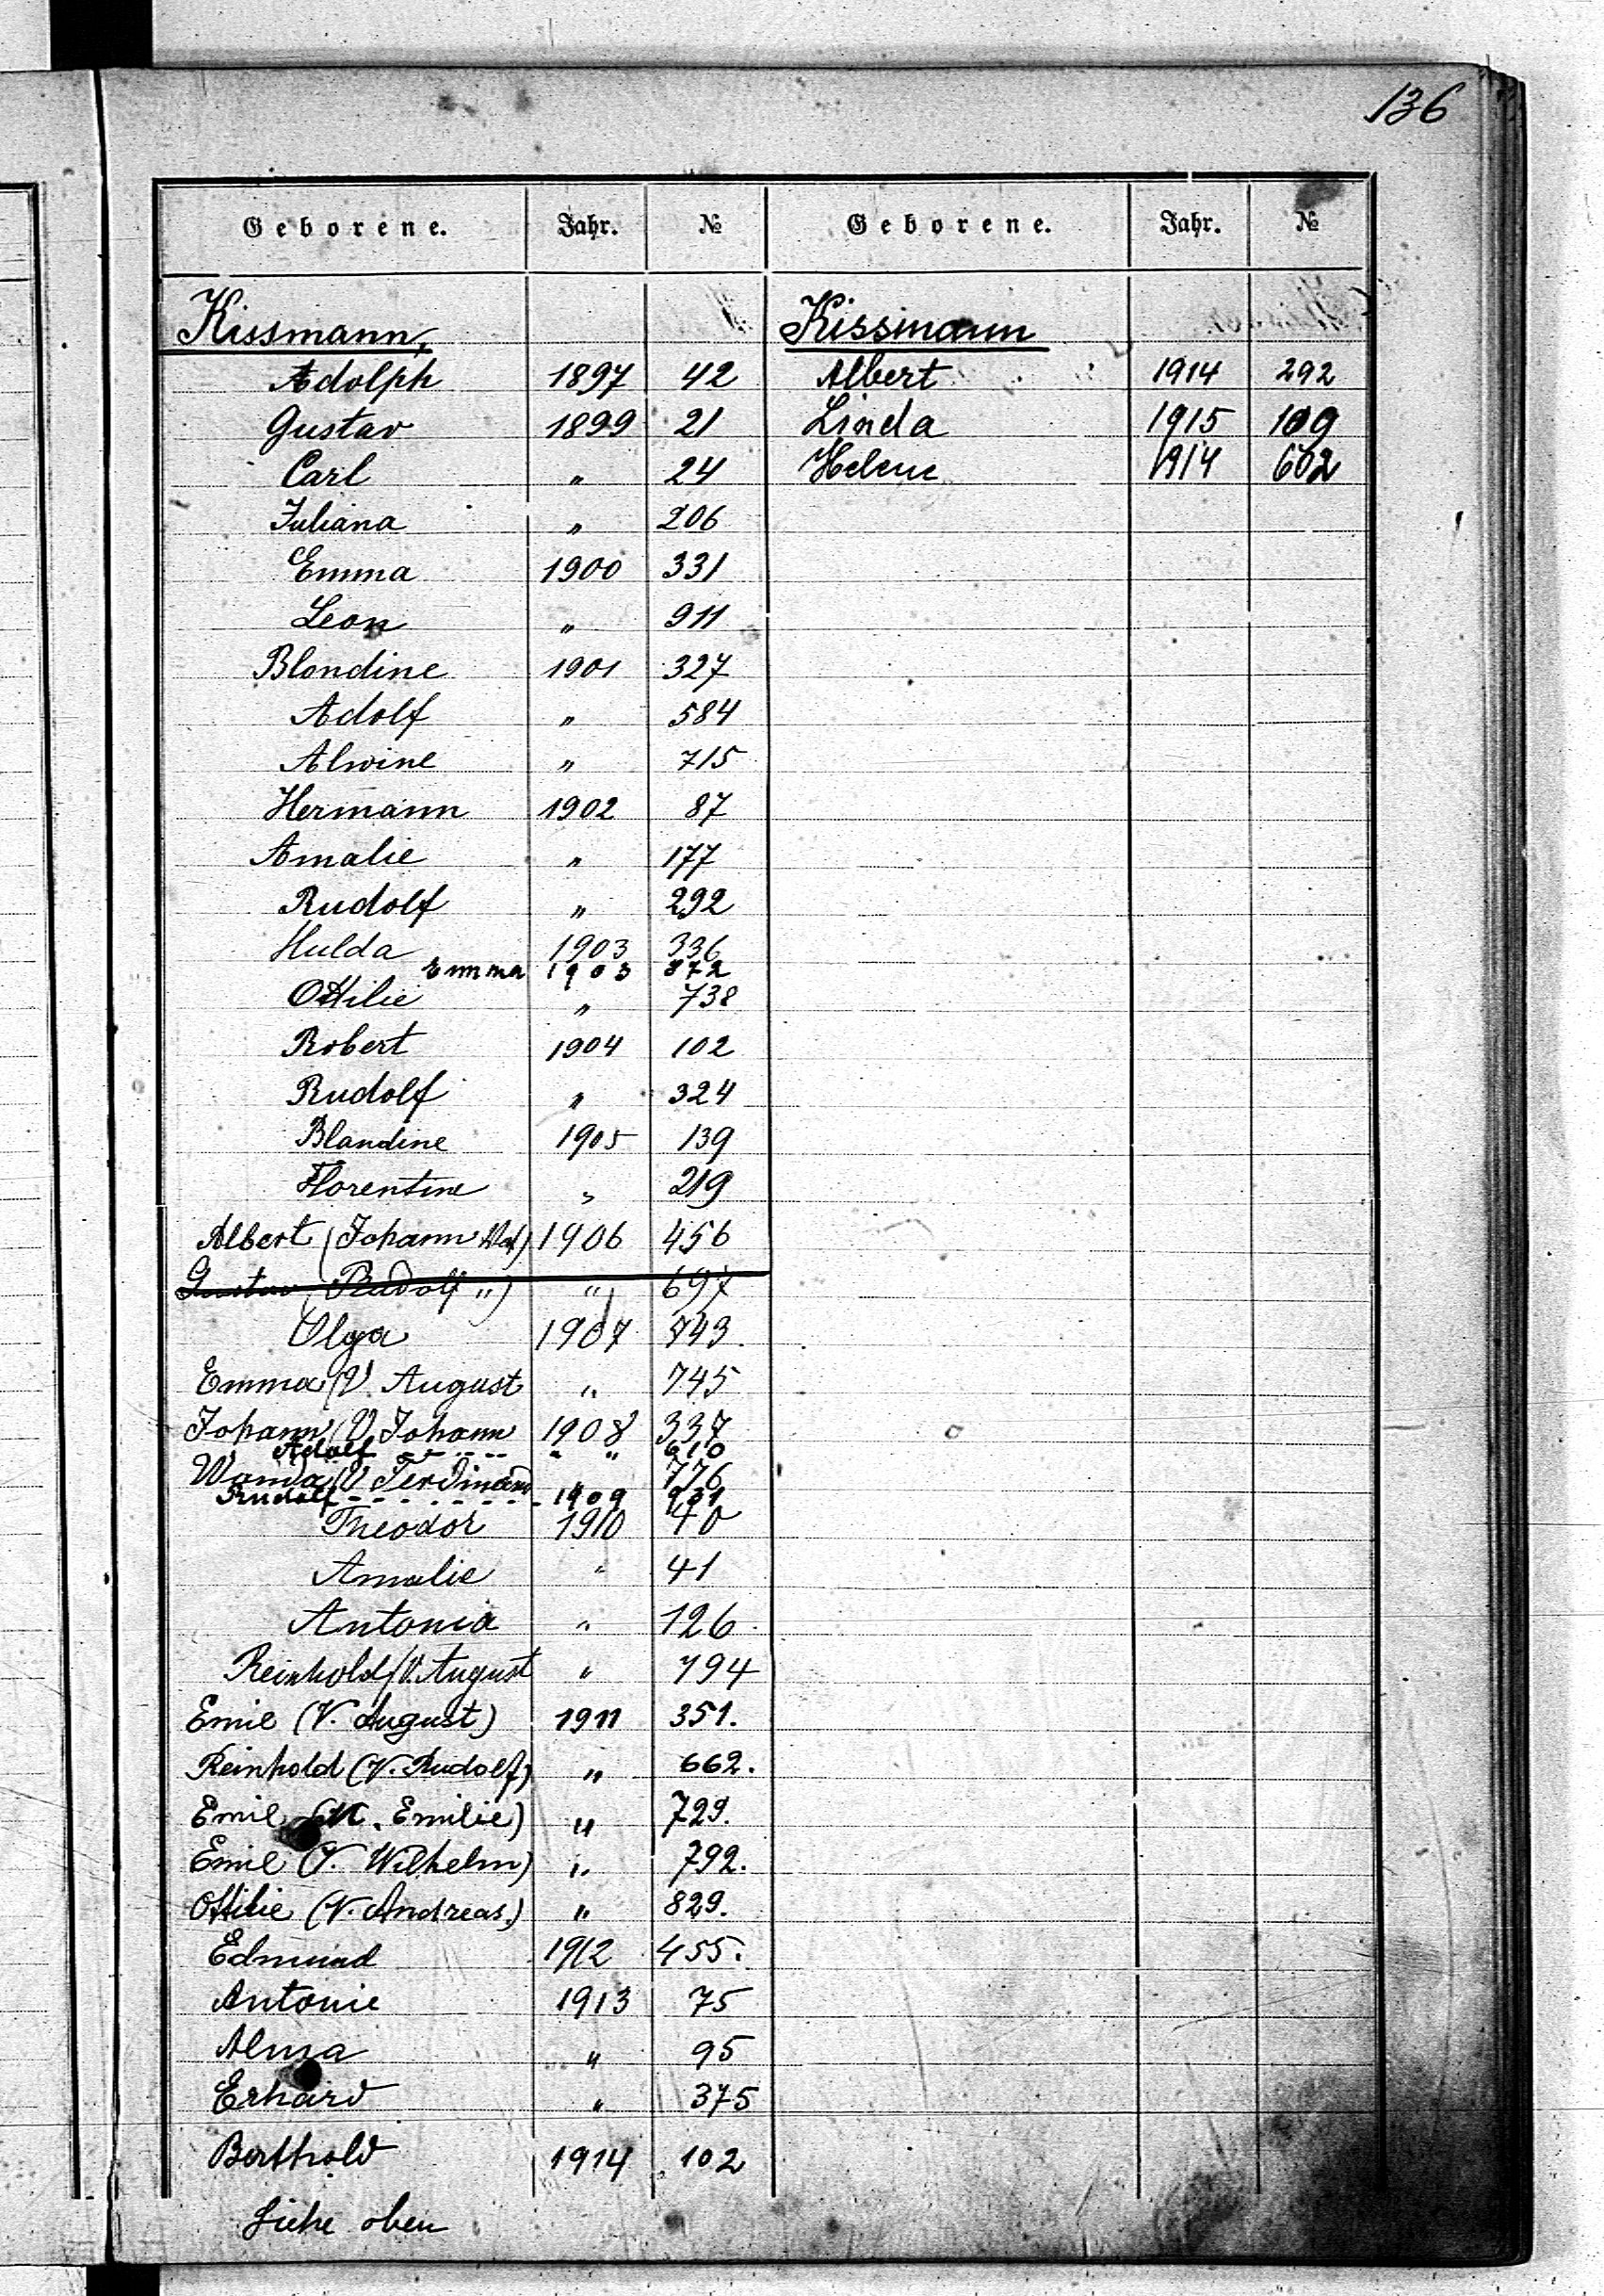 136
Geborene. Jahr. № Geborene. Jahr. №
Kissmann,
Adolph 1897 42
Gustav 1899 21
Carl " 24
Juliana " 206
Emma 1900 331
Leon " 911
Blondine 1901 327
Adolf " 584
Alwine " 715
Hermann 1902 87
Amalie " 177
Rudolf " 292
Hulda 1903 336
Emma 1903 872
Ottilie " 738
Robert 1904 102
Rudolf " 324
Blandine 1905 139
Florentine " 219
Albert (Johann Vat) 1906 456
Gustav (Rudolf ") " 697
Olga 1907 743.
Emma (V. August " 745
Johann (V. Johann 1908 337
Adolf " " 610
Wanda (V Ferdinand 776
Rudolf 1909 931
Theodor 1910 40
Amalie " 41
Antonia " 126
Reinhold (V. August " 794
Emil (V. August) 1911 351.
Reinhold (V. Rudolf) " 662.
Emil (M. Emilie) " 729.
Emil (V. Wilhelm) " 792.
Ottilie (V. Andreas.) " 829.
Edmund 1912 455.
Antonie 1913 75
Alma " 95
Erhard " 375
Berthold 1914 102
Siehe oben
Kissmann
Albert 1914 292
Linda 1915 109
Helene 1914 602